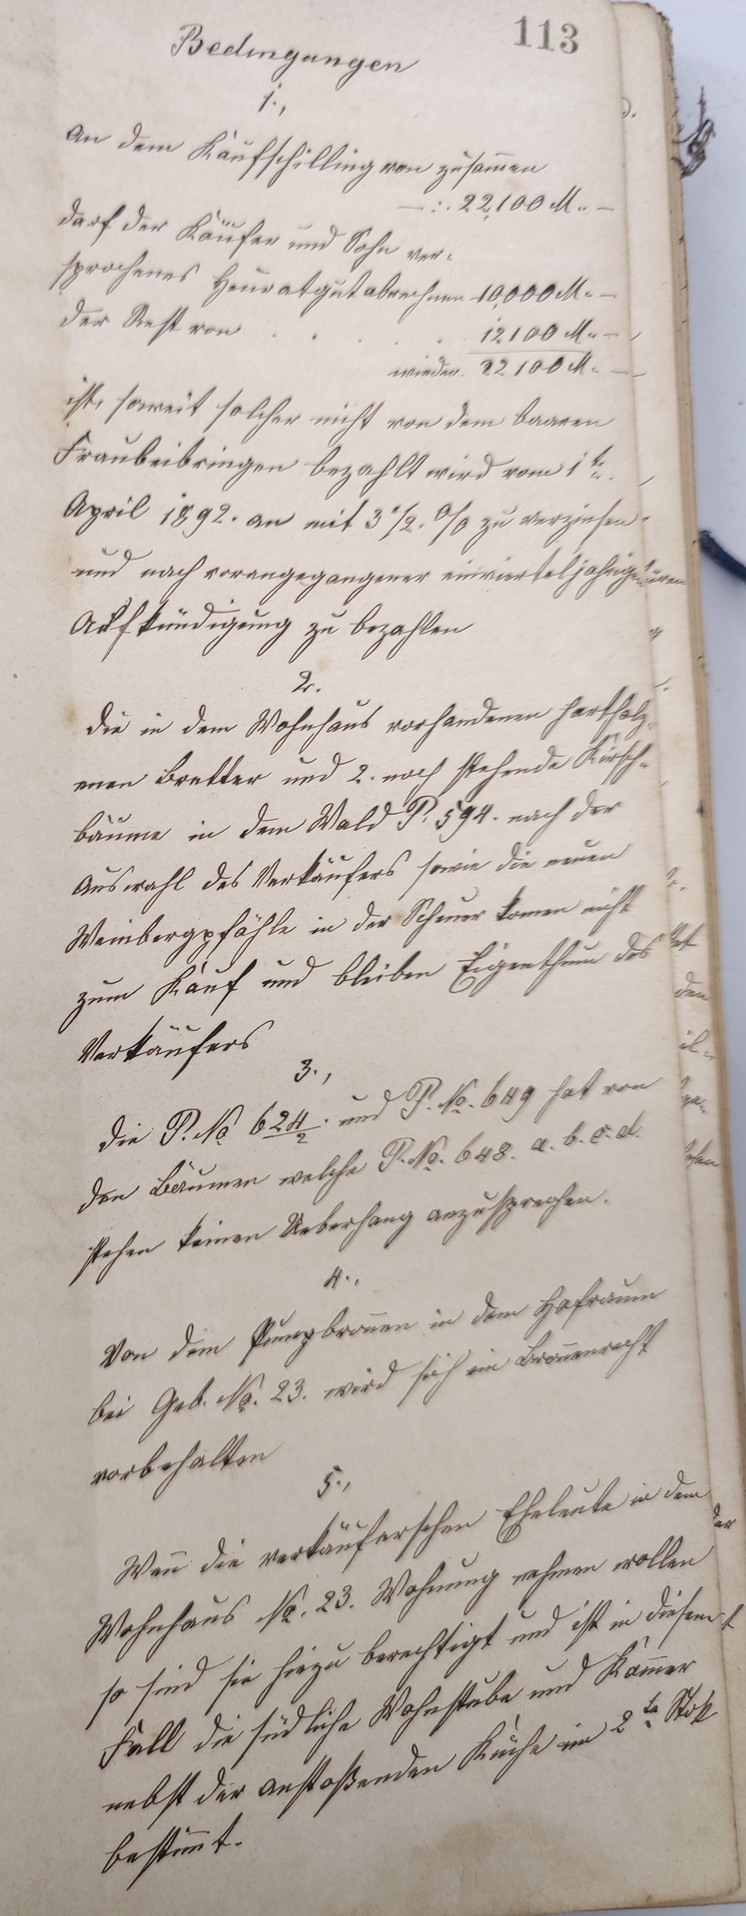 113
Bedingungen
1.,
An dem Kaufschilling von zusammen
—:. 22,100 M. —
darf der Käufer und Sohn ver-
sprochenes Heuratgut abrechnen 10,000 M. —
der Rest von . . . . . 12100 M. —
wieder. 22100 M. —
ist, soweit solcher nicht von dem baaren
Fraubeibringen bezahlt wird vom 1ten
April 1892. an mit 3 1/2. % zu verzinsen
und nach vorangegangener einvierteljährigen
Aufkündigung zu bezahlen
2.
Die in dem Wohnhaus vorhandenen hartholz-
enen Bretter und 2. noch stehende Kirsch-
bäume in dem Wald P. 594. nach der
Auswahl des Verkäufers sowie die neuen
Weinbergpfähle in der Scheuer komen nicht
zum Kauf und bleiben Eigenthum des
Verkäufers
3.,
Die P. No 624/2. und P. No. 649 hat von
den Bäumen welche P. No. 648. a. b. c. d.
stehen keinen Ueberhang anzusprechen.
4.,
Von dem Pumpbronnen in dem Hofraum
bei Geb. No. 23. wird sich ein Bronnenrecht
vorbehalten
5.,
Wenn die verkäuferschen Eheleute in dem
Wohnhaus No. 23. Wohnung nehmen wollen
so sind sie hiezu berechtigt und ist in diesem
Fall die südliche Wohnstube und Kammer
nebst der anstoßenden Küche im 2ten Stok
bestimmt.